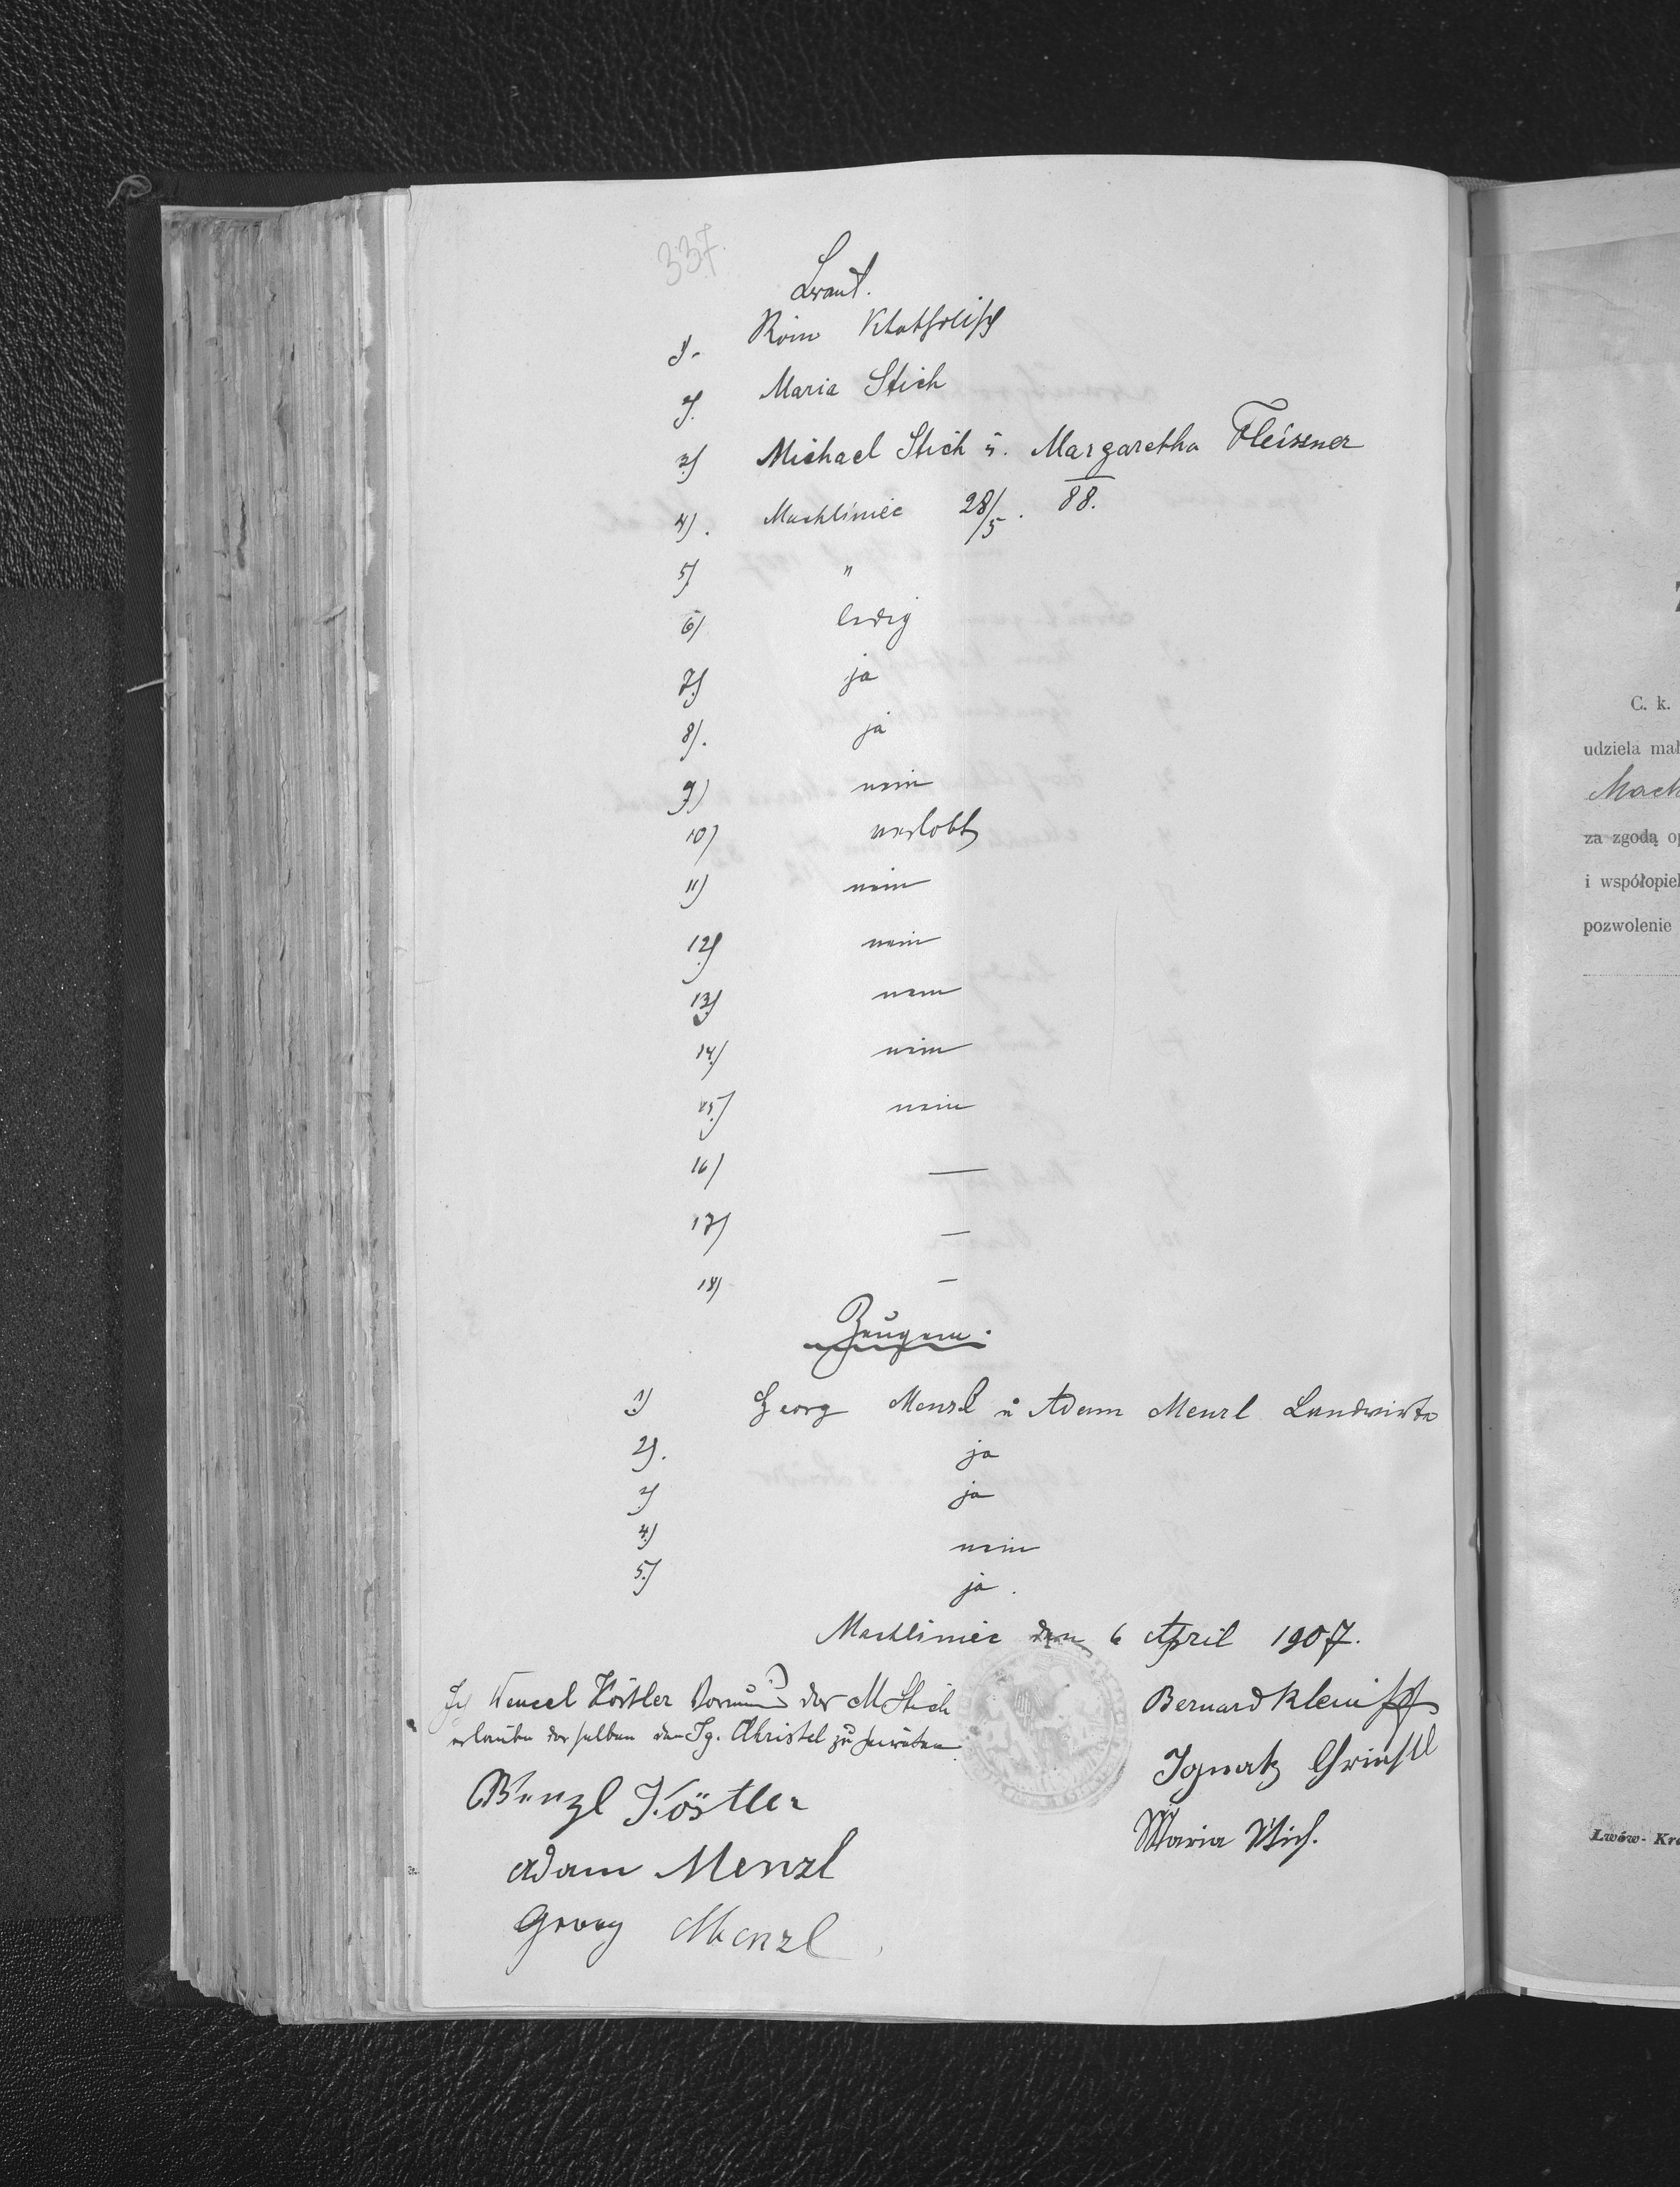 337.
Braut.
1.- Röm Khatholisch
2. Maria Stich
3) Michael Stich ü. Margaretha Fleissner
4). Machliniec 28/5. 88.
5) "
6) ledig
7) ja
8). ja
9) nein
10) verlobt
11) nein
12) nein
13) nein
14.) nein
15.) nein
16) —
17) —
18) —
Zeugen.
1) Georg Menzl ü Adam Menzl Landwirte
2). ja
3) ja
4.) nein
5.) ja.
Machliniec den 6 April 1907.
Ich Wencel Köstler Vormund der M Stich
erlaube derselben den Ig. Christel zu heiraten
Wenzl Köstler
Adam Menzl
Georg Menzl
Bernard
Ignatz Christl
Maria Stich.
C. k.
udziela mał
Mach
za zgodą op
i współopiek
pozwolenie
Lwów- Kra